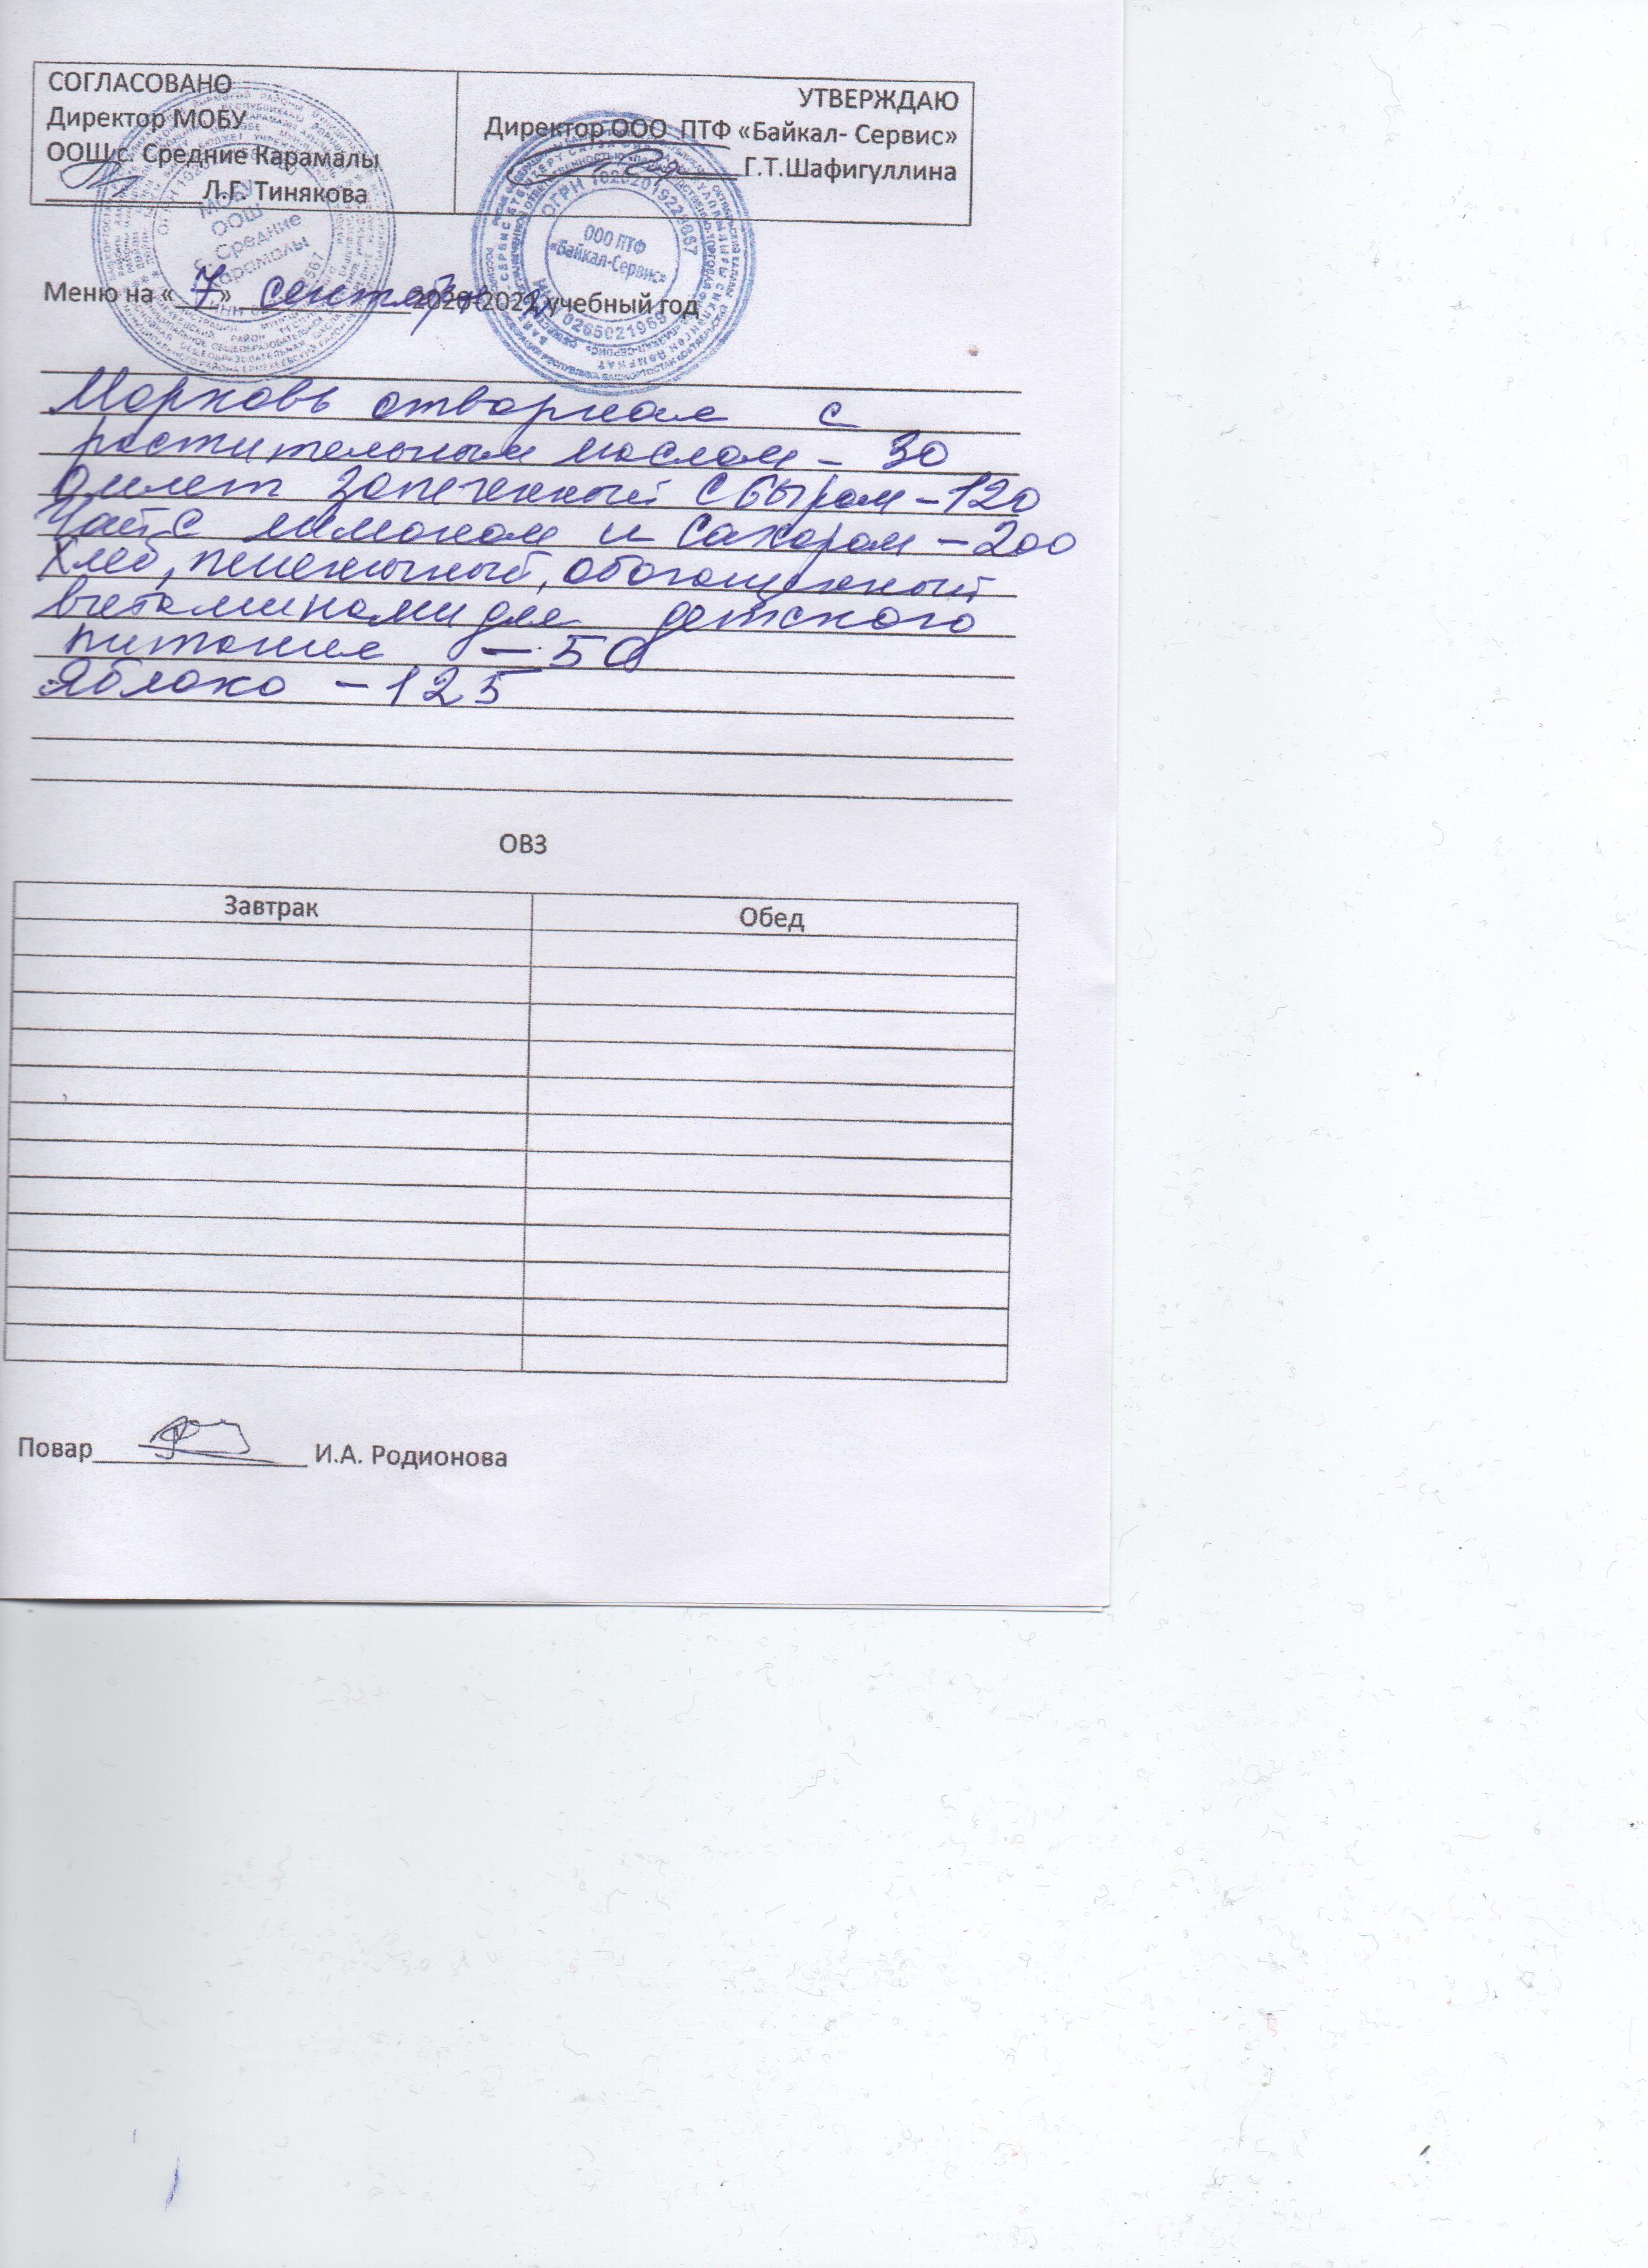 СОГЛАСОВАНО
Директор МОБУ
ООШ с. Средние Карамалы
Л.Г. Тинякова
УТВЕРЖДАЮ
Директор ООО ПТФ «Байкал- Сервис»
Г.Т.Шафигуллина
МОБУ
ООШ
с. Средние
Карамалы
ОГРН 1020201922867
ООО ПТФ
«Байкал-Сервис»
ИНН 0265021969
Меню на « 7 » сентября 2021 учебный год
Морковь отворная с
растительным маслом – 30
Омлет запеченный с сыром – 120
Чай с лимоном и сахаром – 200
Хлеб, пшеничный, обогащенный
витаминами для детского
питания – 50
Яблоко – 125
ОВЗ
Завтрак
Обед
Повар И.А. Родионова